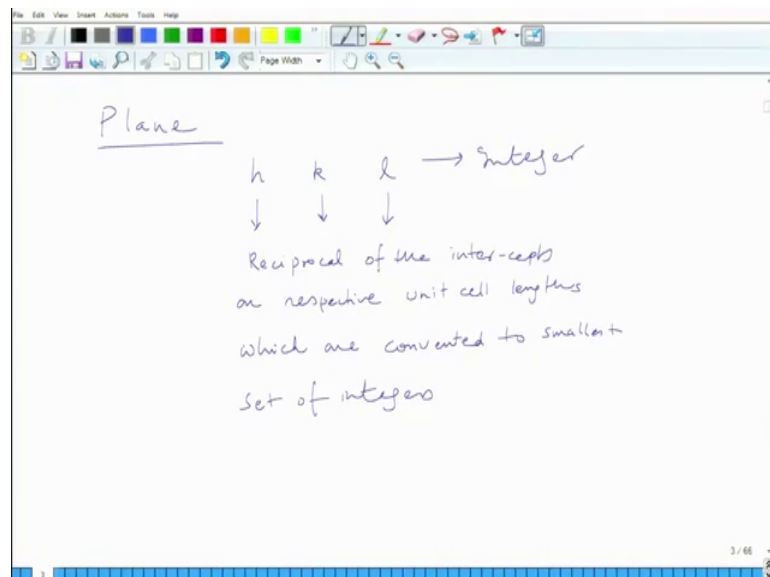 File Edit View Insert Actions Tools Help
B I
Page Width
Plane
h k l → Integer
↓ ↓ ↓
Reciprocal of the inter-cepts
on respective unit cell lengths
which are converted to smallest
set of integers
3 / 66
3